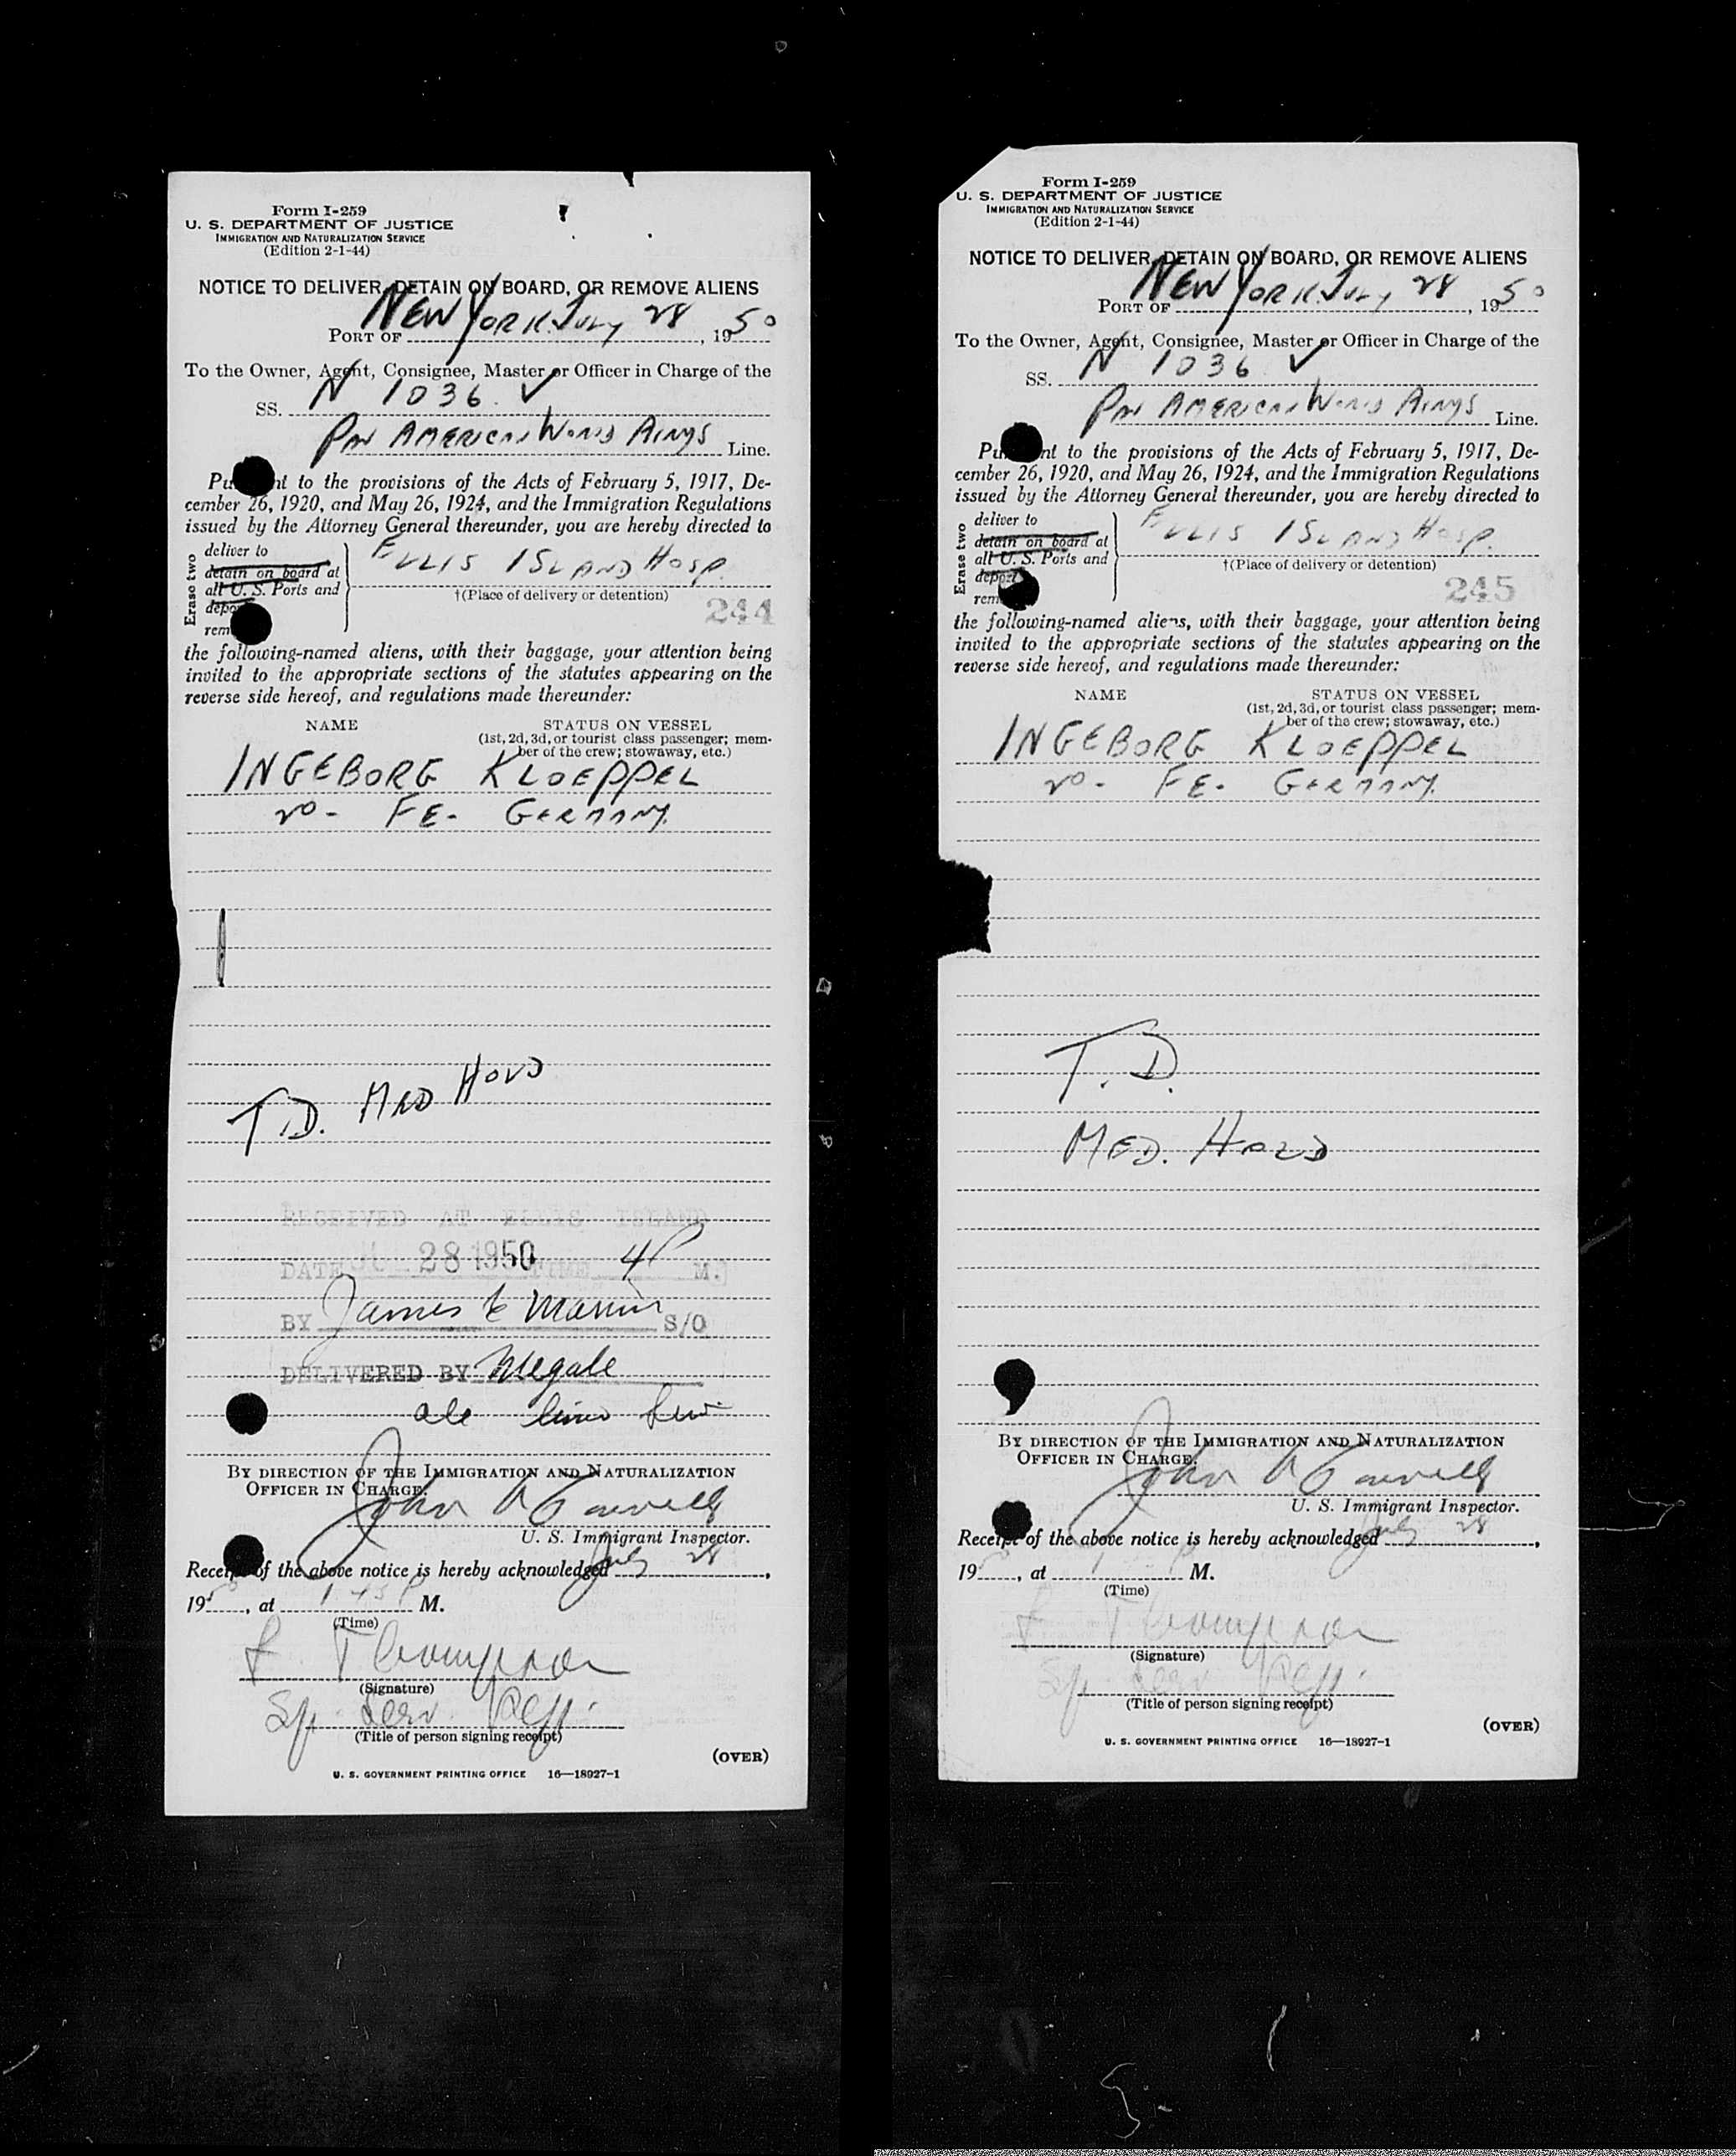 Form I-259
U. S. DEPARTMENT OF JUSTICE
IMMIGRATION AND NATURALIZATION SERVICE
(Edition 2-1-44)
NOTICE TO DELIVER, DETAIN ON BOARD, OR REMOVE ALIENS
PORT OF NEW YORK. JULY 28, 1950
To the Owner, Agent, Consignee, Master or Officer in Charge of the
SS. N 1036 ✓
PAN AMERICAN WORLD AIRWYS Line.
Pu nt to the provisions of the Acts of February 5, 1917, De-
cember 26, 1920, and May 26, 1924, and the Immigration Regulations
issued by the Attorney General thereunder, you are hereby directed to
Erase two
deliver to
detain on board at
all U. S. Ports and
depo
rem
ELLIS ISLAND HOSP.
†(Place of delivery or detention)
244
the following-named aliens, with their baggage, your attention being
invited to the appropriate sections of the statutes appearing on the
reverse side hereof, and regulations made thereunder:
NAME STATUS ON VESSEL
(1st, 2d, 3d, or tourist class passenger; mem-
ber of the crew; stowaway, etc.)
INGEBORG KLOEPPEL
20 - FE - GERMANY.
T.D. MED HOLD
RECEIVED AT ELLIS ISLAND
DATE JUL 28 1950 TIME 4 P M.
BY James E S/O
DELIVERED BY Megale
BY DIRECTION OF THE IMMIGRATION AND NATURALIZATION
OFFICER IN CHARGE:
John
U. S. Immigrant Inspector.
Receipt of the above notice is hereby acknowledged July 28,
195, at 1 45 P M.
(Time)
Thompson
(Signature)
Sp. Serv. Rep.
(Title of person signing receipt)
(OVER)
U. S. GOVERNMENT PRINTING OFFICE 16—18927-1
Form I-259
U. S. DEPARTMENT OF JUSTICE
IMMIGRATION AND NATURALIZATION SERVICE
(Edition 2-1-44)
NOTICE TO DELIVER, DETAIN ON BOARD, OR REMOVE ALIENS
PORT OF NEW YORK. JULY 28, 1950
To the Owner, Agent, Consignee, Master or Officer in Charge of the
SS. N 1036 ✓
PAN AMERICAN WORLD AIRWYS Line.
Pu nt to the provisions of the Acts of February 5, 1917, De-
cember 26, 1920, and May 26, 1924, and the Immigration Regulations
issued by the Attorney General thereunder, you are hereby directed to
Erase two
deliver to
detain on board at
all U. S. Ports and
deport
rem
ELLIS ISLAND HOSP.
†(Place of delivery or detention)
245
the following-named aliens, with their baggage, your attention being
invited to the appropriate sections of the statutes appearing on the
reverse side hereof, and regulations made thereunder:
NAME STATUS ON VESSEL
(1st, 2d, 3d, or tourist class passenger; mem-
ber of the crew; stowaway, etc.)
INGEBORG KLOEPPEL
20 - FE - GERMANY.
T.D.
MED. HOLD
BY DIRECTION OF THE IMMIGRATION AND NATURALIZATION
OFFICER IN CHARGE:
John
U. S. Immigrant Inspector.
Receipt of the above notice is hereby acknowledged July 28,
195, at 1 P M.
(Time)
Thompson
(Signature)
Sp. Serv. Rep.
(Title of person signing receipt)
(OVER)
U. S. GOVERNMENT PRINTING OFFICE 16—18927-1